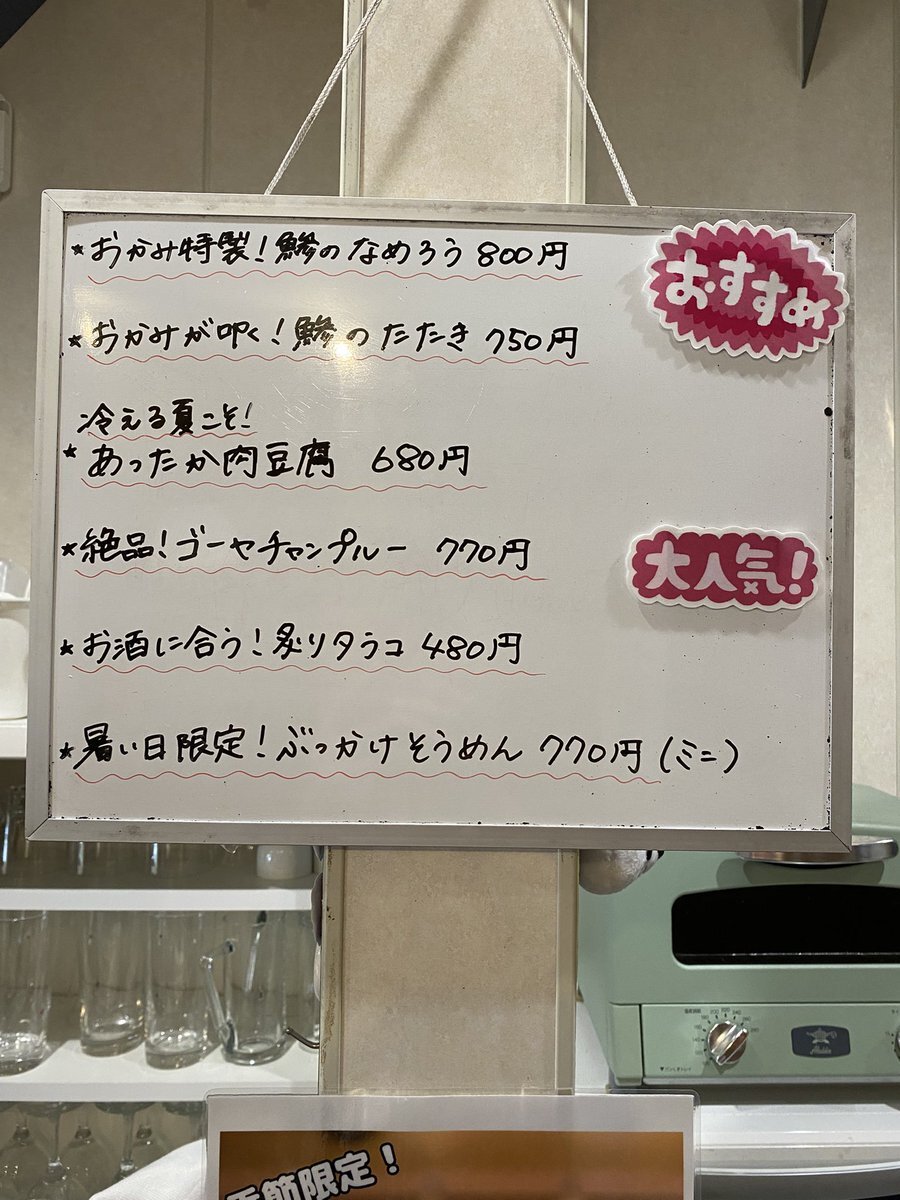 *おかみ特製!鯵のなめろう 800円
おすすめ
*おかみが叩く!鯵のたたき 750円
冷える夏こそ!
*あったか肉豆腐 680円
*絶品!ゴーヤチャンプルー 770円
大人気!
*お酒に合う!炙りタラコ 480円
*暑い日限定!ぶっかけそうめん 770円(ミニ)
季節限定!